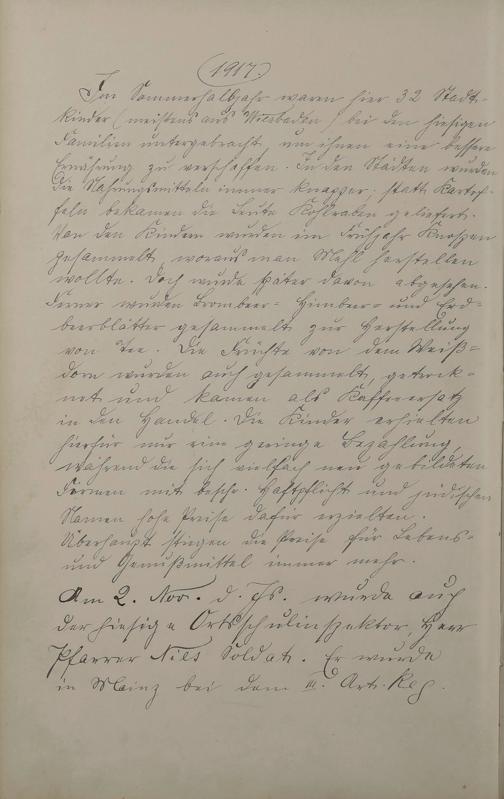 (1917.)
Im Sommerhalbjahr waren hier 32 Stadt-
kinder (meistens aus Wiesbaden) bei den hiesigen
Familien untergebracht, um ihnen eine bessere
Ernährung zu verschaffen. In den Städten wurden
die Nahrungsmitteln immer knapper; statt Kartof-
feln bekamen die Leute Kohlraben geliefert.
Von den Kindern wurden im Frühjahr Knospen
gesammelt, woraus man Mehl herstellen
wollte. Doch wurde später davon abgesehen.
Ferner wurden Brombeer- Himbeer- und Erd-
beerblätter gesammelt zur Herstellung
von Tee. Die Früchte von dem Weiß-
dorn wurden auch gesammelt, getrock-
net und kamen als Kaffeeersatz
in den Handel. Die Kinder erhielten
hierfür nur eine geringe Bezahlung,
während die sich vielfach neu gebildeten
Firmen mit beschr. Haftpflicht und jüdischen
Namen hohe Preise dafür erzielten.
Überhaupt stiegen die Preise für Lebens-
und Genußmittel immer mehr.
Am 2. Nov. d. Js. wurde auch
der hiesige Ortsschulinspektor, Herr
Pfarrer Nies Soldat. Er wurde
in Mainz bei dem III. Art. Reg.